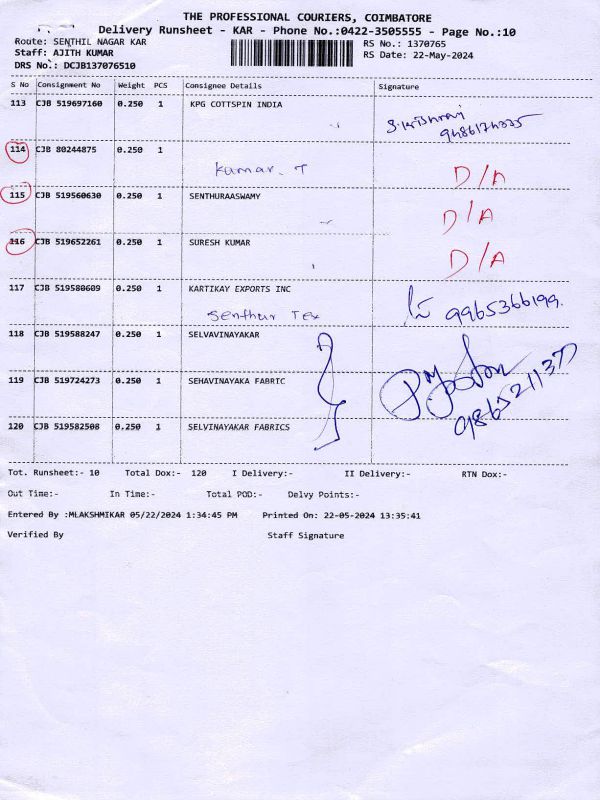 THE PROFESSIONAL COURIERS, COIMBATORE
Delivery Runsheet - KAR - Phone No.:0422-3505555 - Page No.:10
Route: SENTHIL NAGAR KAR
Staff: AJITH KUMAR
DRS No.: DCJB137076510
RS No.: 1370765
RS Date: 22-May-2024
S No Consignment No Weight PCS Consignee Details Signature
113 CJB 519697160 0.250 1 KPG COTTSPIN INDIA
114 CJB 80244875 0.250 1
Kumar. T D/A
115 CJB 519560630 0.250 1 SENTHURAASWAMY
D/A
116 CJB 519652261 0.250 1 SURESH KUMAR
D/A
117 CJB 519580609 0.250 1 KARTIKAY EXPORTS INC
Senthur Tex 9965366199.
118 CJB 519588247 0.250 1 SELVAVINAYAKAR
119 CJB 519724273 0.250 1 SEHAVINAYAKA FABRIC
9865211377
120 CJB 519582508 0.250 1 SELVINAYAKAR FABRICS
Tot. Runsheet:- 10 Total Dox:- 120 I Delivery:- II Delivery:- RTN Dox:-
Out Time:- In Time:- Total POD:- Delvy Points:-
Entered By :MLAKSHMIKAR 05/22/2024 1:34:45 PM Printed On: 22-05-2024 13:35:41
Verified By Staff Signature